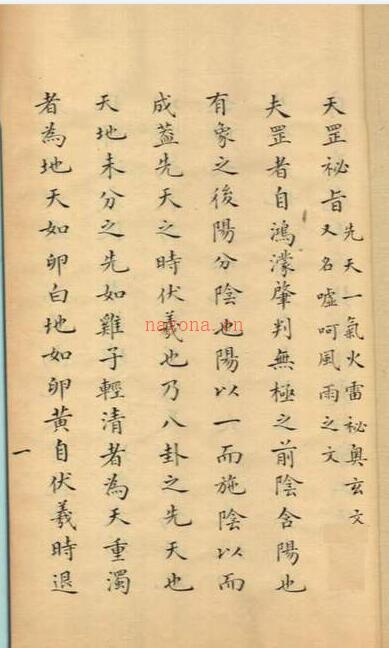 天罡祕旨
先天一氣火雷祕奥玄文
又名噓呵風雨之文
夫罡者自鴻濛肇判無極之前陰含陽也
有象之後陽分陰也陽以一而施陰以而
成葢先天之時伏羲也乃八卦之先天也
天地未分之先如雞子輕清者為天重濁
者為地天如卵白地如卵黃自伏羲時退
一
nayona.cn